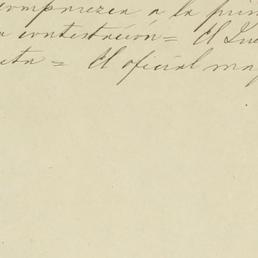 comparezca á la prim
contestación = El Jue
cta = El oficial may